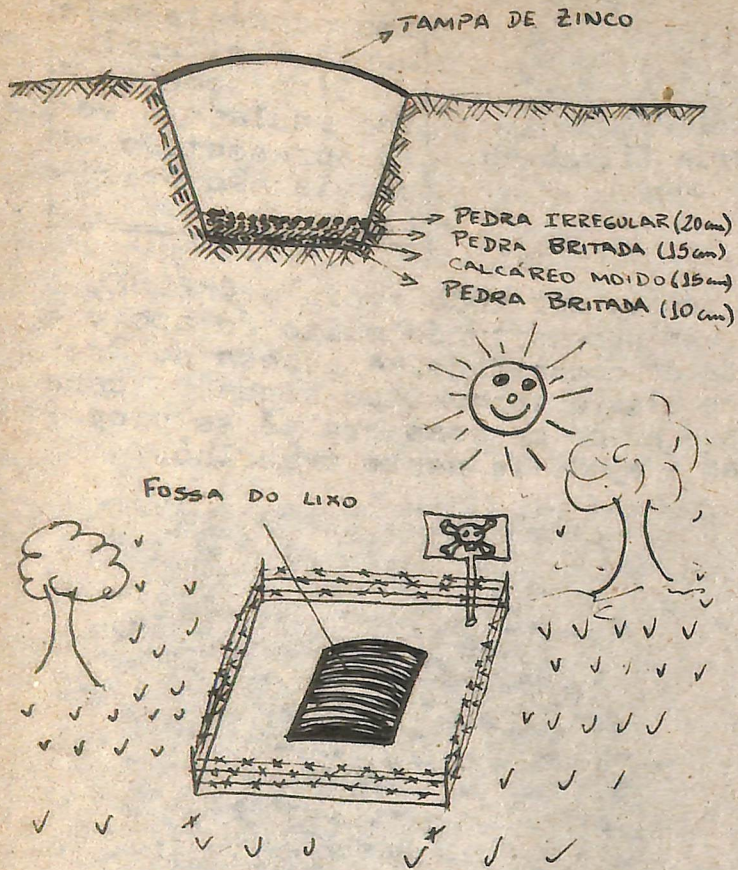 TAMPA DE ZINCO
PEDRA IRREGULAR (20 cm)
PEDRA BRITADA (15 cm)
CALCÁREO MOIDO (15 cm)
PEDRA BRITADA (10 cm)
FOSSA DO LIXO